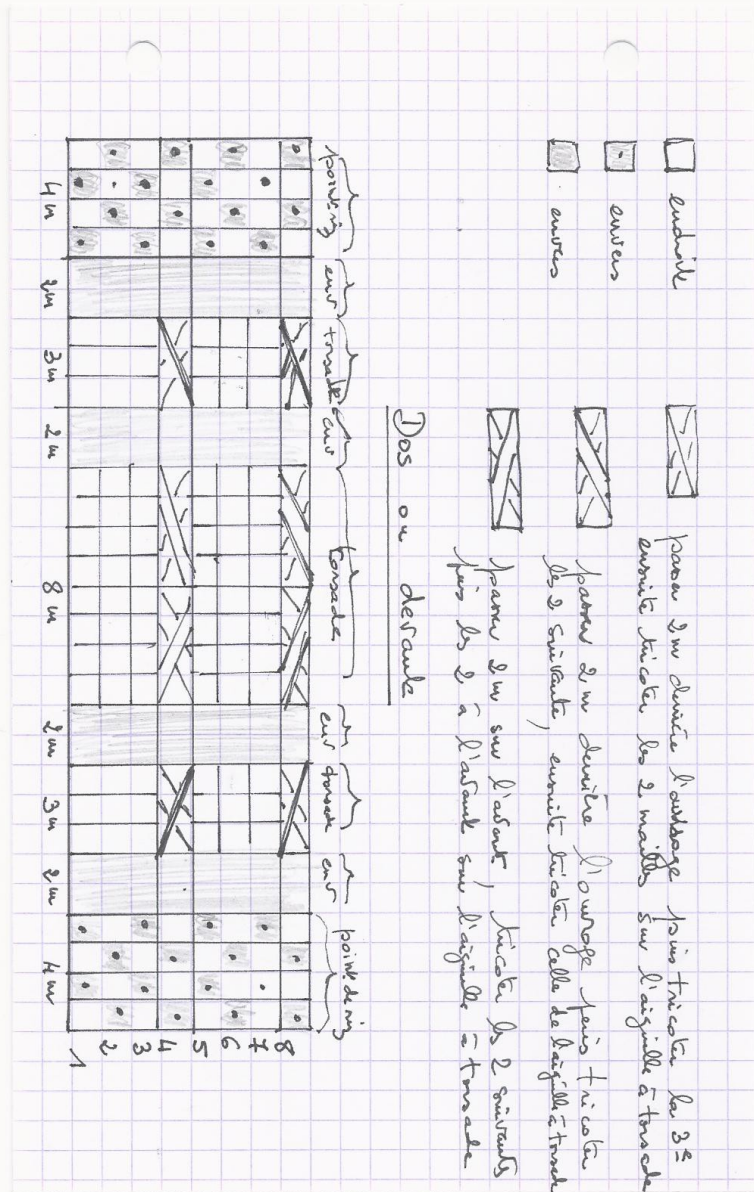 endroite
envers
envers
passer 2 m derrière l'ouvrage puis tricoter la 3e
ensuite tricoter les 2 mailles sur l'aiguille à torsade
passer 2 m derrière l'ouvrage puis tricoter
les 2 suivante, ensuite tricoter celle de l'aiguille à torsade
passer 2 m sur l'avant, tricoter les 2 suivants
puis les 2 à l'avant sur l'aiguille à torsade
Dos ou devant
point riz
env
torsade
env
torsade
env
torsade
env
point de riz
4m
2m
3m
2m
8m
2m
3m
2m
4m
1
2
3
4
5
6
7
8